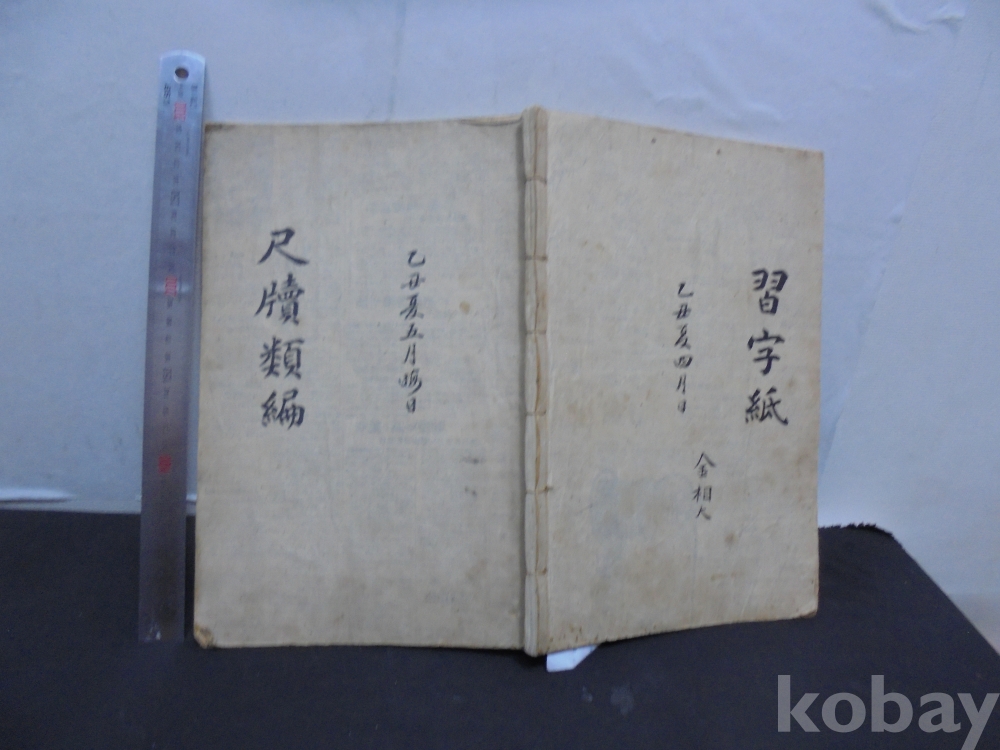 習字紙
乙丑夏四月日
金相大
乙丑夏五月晦日
尺牘類編
kobay